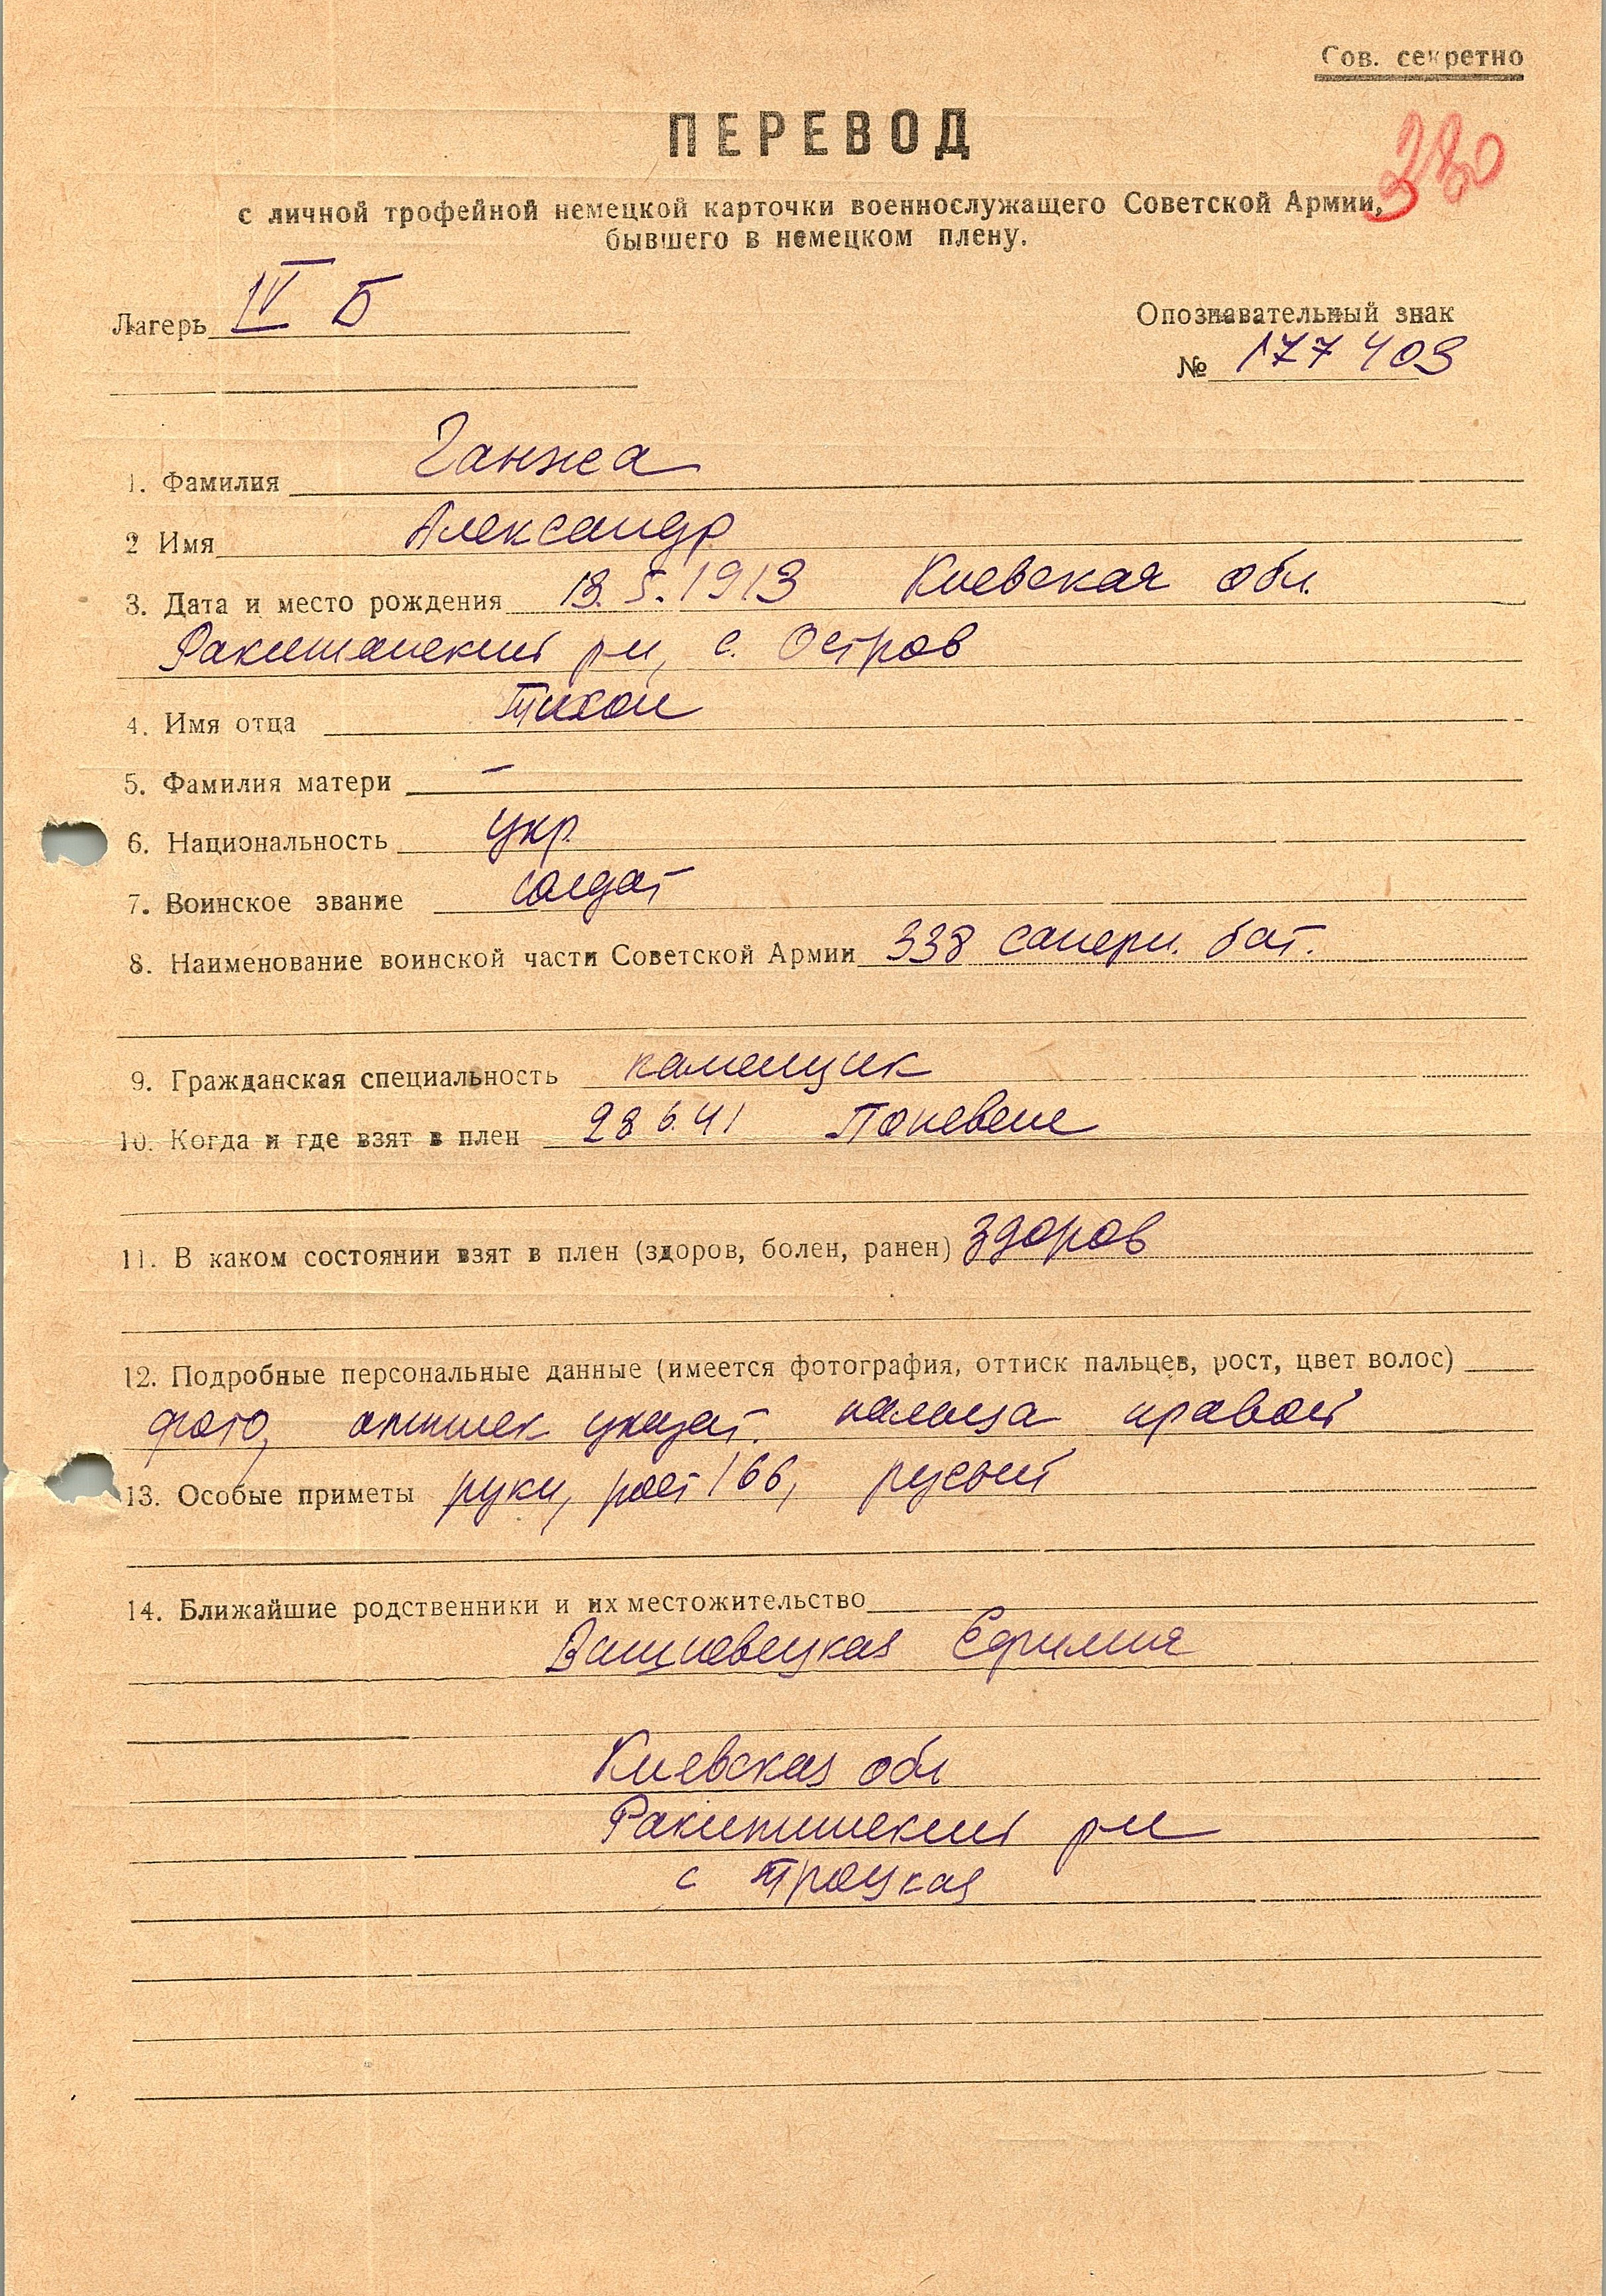 Сов. секретно
ПЕРЕВОД
380
с личной трофейной немецкой карточки военнослужащего Советской Армии,
бывшего в немецком плену.
Лагерь IV Б
Опознавательный знак
№ 177403
1. Фамилия Ганжа
2 Имя Александр
3. Дата и место рождения 13.5.1913 Киевская обл.
Ракитянский р-н, с. Остров
4. Имя отца Тихон
5. Фамилия матери —
6. Национальность укр.
7. Воинское звание солдат
8. Наименование воинской части Советской Армии 338 саперн. бат.
9. Гражданская специальность каменщик
10. Когда и где взят в плен 28 6.41 Поневеж
11. В каком состоянии взят в плен (здоров, болен, ранен) здоров
12. Подробные персональные данные (имеется фотография, оттиск пальцев, рост, цвет волос)
фото, оттиск указат. пальца правой
13. Особые приметы руки, рост 166, русый
14. Ближайшие родственники и их местожительство
Вишневецкая Ефимия
Киевская обл
Ракитинский р-н
с Троцкая